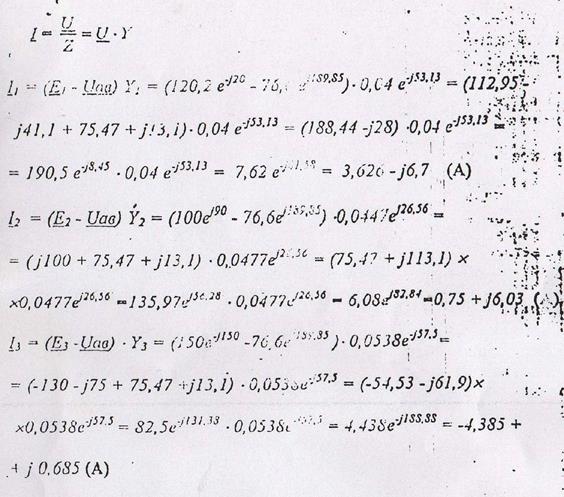 I = U/Z = U · Y
I₁ = (E₁ - Uав) Y₁ = (120,2 e^-j20 - 76,6 e^j189,85) · 0,04 e^-j53,13 = (112,95 -
j41,1 + 75,47 + j13,1) · 0,04 e^-j53,13 = (188,44 -j28) ·0,04 e^-j53,13 =
= 190,5 e^-j8,45 · 0,04 e^-j53,13 = 7,62 = 3,626 -j6,7 (A)
I₂ = (E₂ - Uав) Y₂ = (100e^j90 - 76,6e^j189,85) ·0,0447e^j26,56 =
= (j100 + 75,47 + j13,1) · 0,0477e^j26,56 = (75,47 + j113,1) ×
×0,0477e^j26,56 =135,97e^j56,28 · 0,0477e^j26,56 = 6,08e^j82,84=0,75 + j6,03 (A)
I₃ = (E₃ -Uав) · Y₃ = (150e^-j150 -76,6e^j189,85) · 0,0538e^-j57,5=
= (-130 -j75 + 75,47 +j13,1) · 0,0538e^-j57,5 = (-54,53 -j61,9)×
×0,0538e^-j57,5 = 82,5e^-j131,38 · 0,0538e^-j57,5 = 4,438e^-j188,88 = -4,385 +
+ j 0,685 (A)